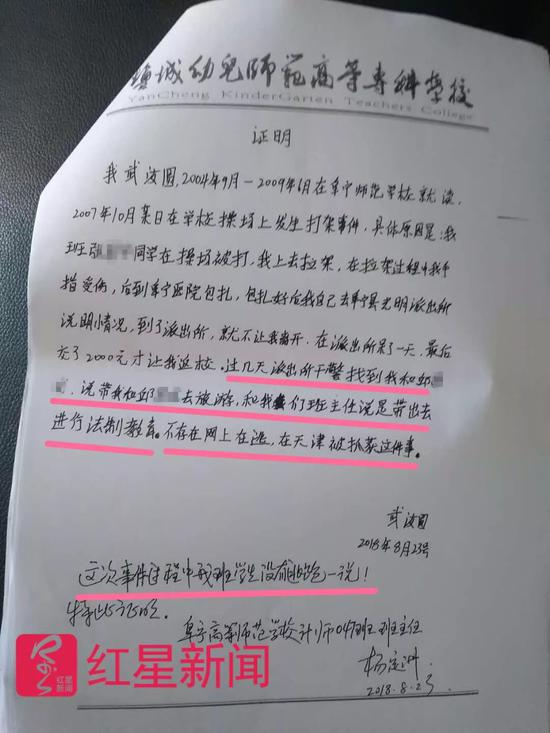 盐城幼儿师范高等专科学校
YanCheng KinderGarten Teachers College
证明
我武汝圆,2004年9月-2009年6月在阜宁师范学校就读,
2007年10月某日在学校操场上发生打架事件,具体原因是:我
班张 同学在操场被打,我上去拉架,在拉架过程中我手
指受伤,后到阜宁医院包扎,包扎好后我自己去阜宁县光明派出所
说明情况,到了派出所,就不让我离开,在派出所呆了一天,最后
交了2000元才让我返校。过几天派出所干警找到我和邱
,说带我和邱 去旅游,和我们班主任说是带出去
进行法制教育。不存在网上在逃,在天津被抓获这件事。
武汝圆
2018年8月23号
这次事件过程中我班学生没有逃跑一说!
特此证明。
阜宁高等师范学校计师04 班班主任
杨 
2018.8.23
红星新闻
红星新闻